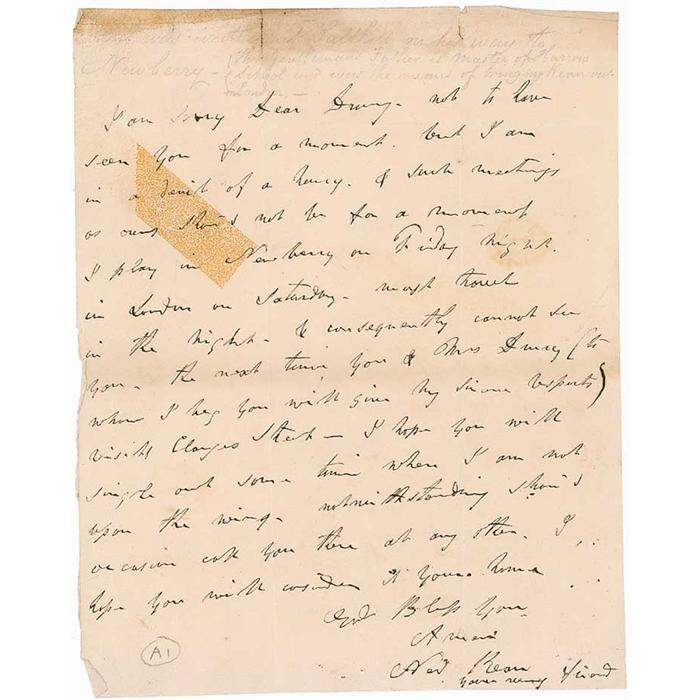 at Salt Hill on his way to
Newberry - (this Gentlemans Father is Master of Harrow
School and was the means of bringing Kean out
London -
I am Sorry Dear Drury - not to have
seen you for a moment. but I am
in a devil of a hurry. & such meetings
as ours shou'd not be for a moment
I play in Newberry on Friday night.
in London on Saturday - must travel
in the night - & consequently cannot see
you - the next time you & Mrs Drury (to
whom I beg you will give my sincere respects)
visits Clarges Street - I hope you will
single out some time when I am not
upon the wing - notwithstanding shou'd
occasion call you there at any other - I
hope you will consider it your home
God Bless You
Amen
Ned Kean
yours very Friend
A1